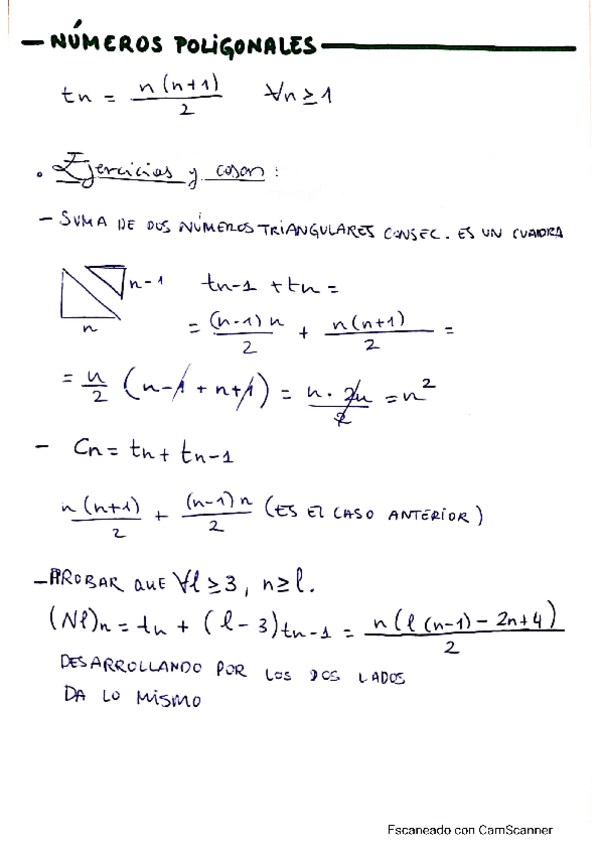 - NÚMEROS POLIGONALES
tn = n(n+1)/2 ∀n ≥ 1
• Ejercicios y cosas:
- SUMA DE DOS NÚMEROS TRIANGULARES CONSEC. ES UN CUADRA
n-1 tn-1 + tn =
n = (n-1)n/2 + n(n+1)/2 =
= n/2 (n-1 + n+1) = n·2n/2 = n²
- Cn = tn + tn-1
n(n+1)/2 + (n-1)n/2 (ES El CASO ANTERIOR)
- PROBAR QUE ∀l ≥ 3, n ≥ l.
(Nl)n = tn + (l-3)tn-1 = n(l(n-1) - 2n+4)/2
DESARROLLANDO POR LOS DOS LADOS
DA LO MISMO
Escaneado con CamScanner